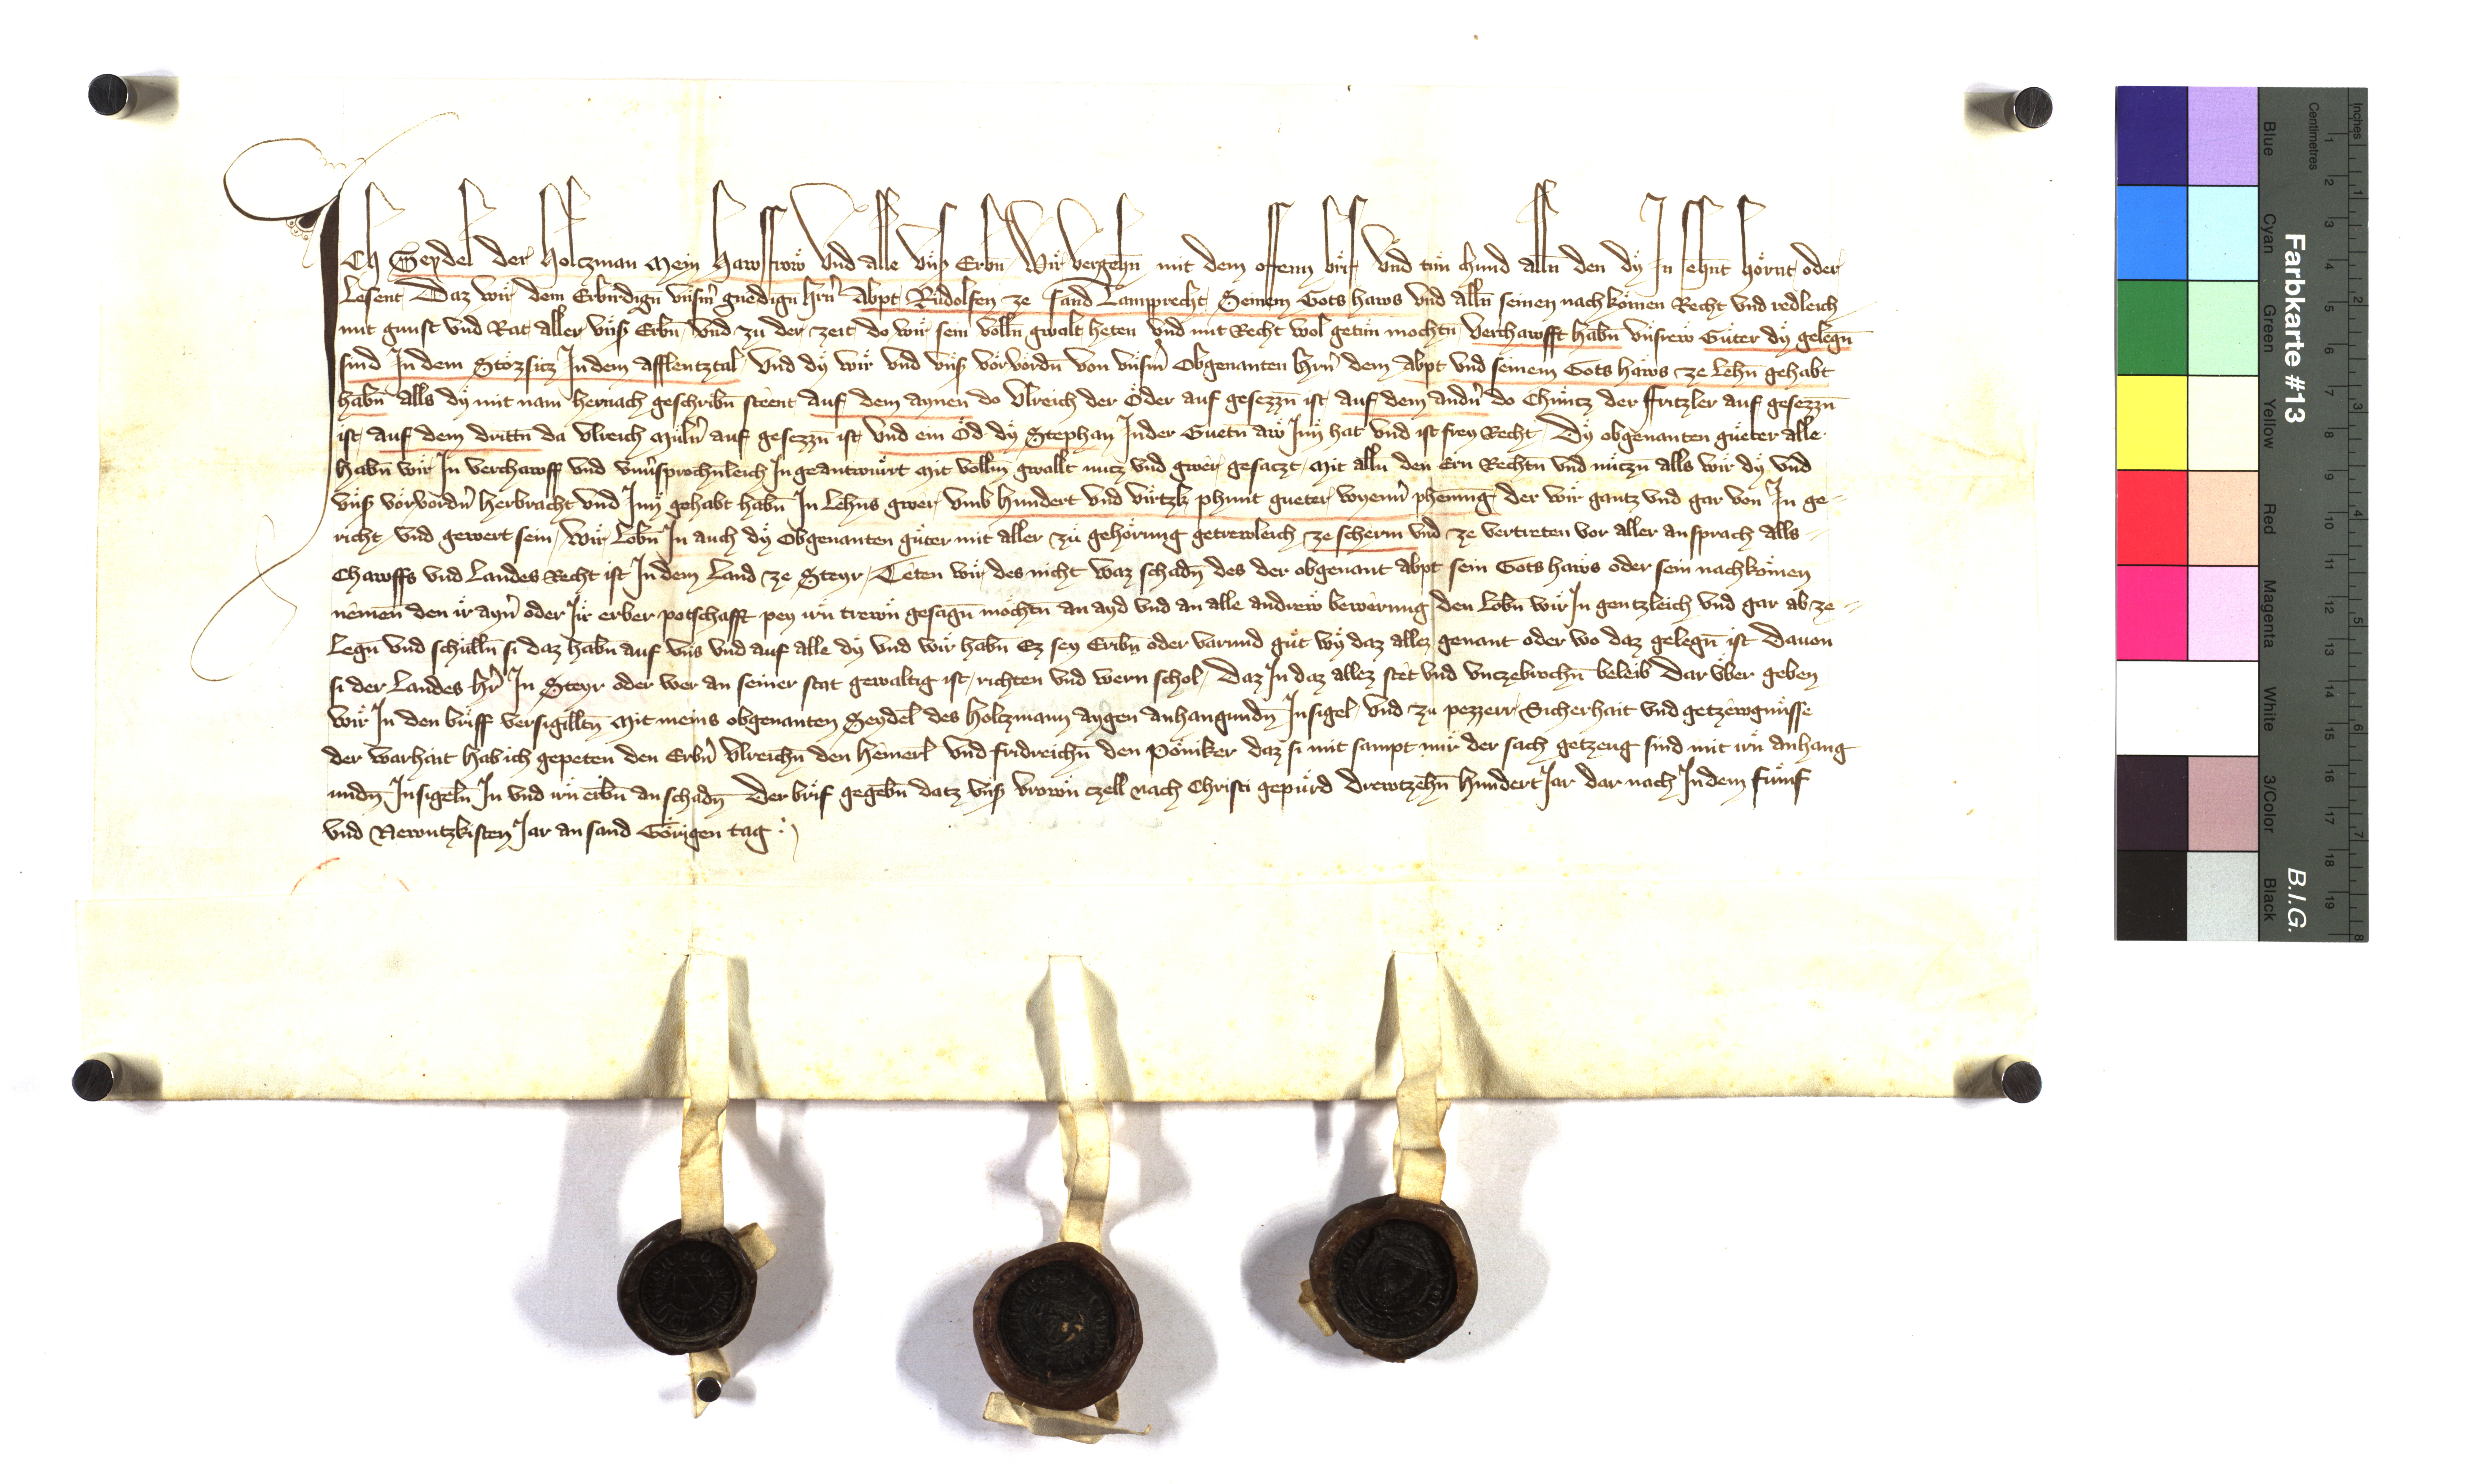 ICh Seydel der Holczman Mein Hawsfrow Vnd alle Vnß Erbn̄ Wir vergehn̄ mit dem offenn brif Vnd tün chund alln̄ den dÿ In sehnt hörnt oder
Lesent Daz wir dem Erbirdign̄ vnsm̄ gnedign̄ Hrn̄ Abpt Rudolfen ze sand Lamprecht Seinem Gots haws Vnd alln̄ seinen nachkömen Recht Vnd redleich
mit gunst vnd Rat aller vnß Erbn̄ vnd zu der zeit do wir sein volln̄ gwalt heten vnd mit Recht wol getün mochtn̄ Verchawfft habn̄ vnsrew Güter dÿ gelegn̄
sind In dem Stözsicz In dem afflentztal Vnd dÿ wir vnd vnß vörvördn̄ von vnsm̄ Obgenanten Hrn̄ dem abpt vnd seinem Gots haws ze Lehn̄ gehabt
habn̄ alls dÿ mit nam hernach geschribn̄ steent auf dem aynen do Vlreich der Öder auf gesezzn̄ ist auf dem andn̄ do Chüntz der Fritzler auf gesezzn̄
ist auf dem drittn̄ da Vlreich Müln̄ auf gesezzn̄ ist Vnd ein Öd dÿ Stephan In der Guetn̄ aw Inn hat vnd ist frey Recht Dÿ obgenanten güeter alle
habn̄ wir In verchawff vnd vnu͛sprochnleich In geantwürt Mit volln̄ gwallt nutz vnd gwer gesaczt Mit alln̄ den Ern Rechtn̄ vnd nüczn̄ alls wir dÿ vnd
vnß vörvördn̄ herbracht vnd Inn gehabt habn̄ In Lehns gwer Vmb Hundert vnd virtzk phunt gueter wyenn̄ phenning der wir gantz vnd gar von In ge-
richt vnd gewert sein Wir Lobn̄ In auch dÿ Obgenanten güter mit aller zü gehörung getrewleich ze scherm vnd ze vertreten vor aller ansprach alls
Chawffs vnd Landes Recht ist In dem Land ze Steyr Teten wir des nicht waz schadn̄ des der obgenant abpt sein Gots haws oder sein nachkömen
nemen den ir ayn̄ oder Ir erber potschafft pey irn̄ trewn̄ gesagn̄ möchtn̄ an ayd vnd an alle andrew bewerung den Lobn̄ wir In gentzleich vnd gar ab ze-
Legn̄ vnd schülln̄ si daz habn̄ auf vns vnd auf alle dÿ vnd wir habn̄ Ez sey Eribn̄ oder varund güt wÿ daz allez genant oder wo daz gelegn̄ ist Dauon
si der Landes Hr̄ In Steyr oder wer an seiner stat gewaltig ist richten vnd wern schol Daz In daz allez stet vnd vnczebrochn̄ beleib Dar vber geben
wir In den briff versigilltn̄ Mit meins obgenanten Seydel des Holczmann aygen anhangundn̄ Insigel vnd zu pezzerr Sicherhait vnd getzewgnüsse
der warhait hab ich gepeten den Erbn̄ Vlreichn̄ den Hemerl Vnd Fridreichn̄ den Pöniker daz si mit sampt mir der sach getzeug sind mit irn̄ anhang
undn̄ Insigeln̄ In vnd irn̄ eribn̄ an schadn̄ Der brif gegebn̄ datz vnß vrown̄ czell nach Christi gepürd Drewtzehn̄ Hundert Jar dar nach In dem fünf
vnd Newntzkisten Jar an sand Görigen tag
Farbkarte #13
B.I.G.
Inches
Centimetres
1 2 3 4 5 6 7 8 9 10 11 12 13 14 15 16 17 18 19
1 2 3 4 5 6 7 8
Blue
Cyan
Green
Yellow
Red
Magenta
White
3/Color
Black